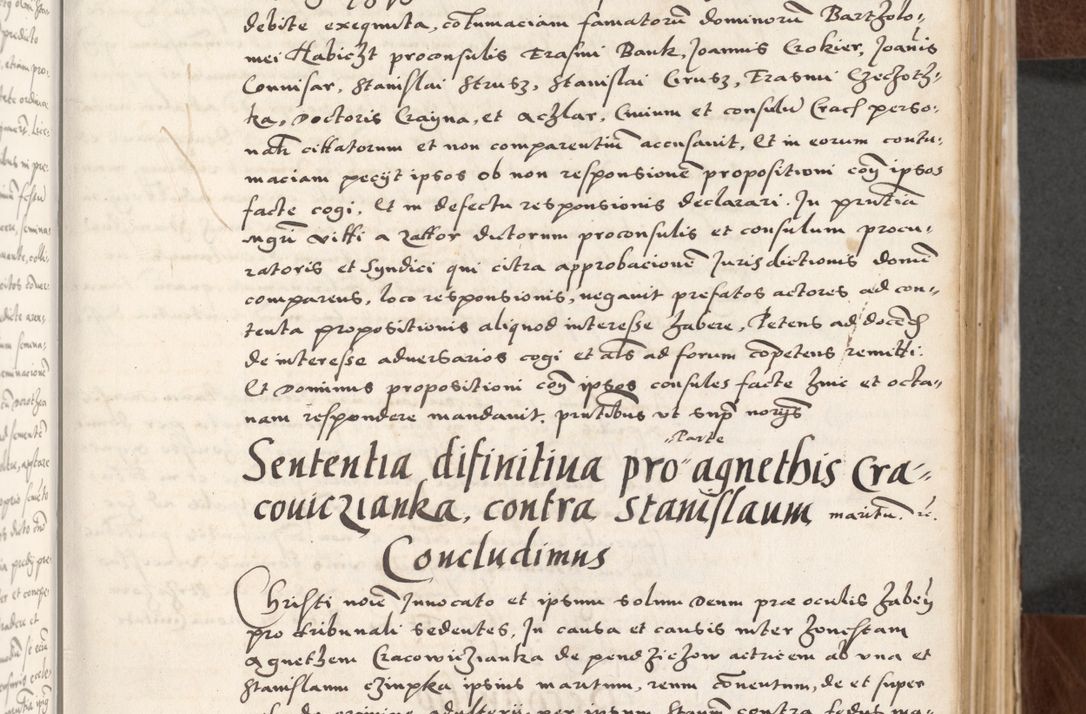 debite exequuta, cotumaciam famatorū dominorū Bartholo,,
mei Habicht proconsulis Erasmi Bank, Joannis Crokier, Joānis
Conusar, Stanislai Strusz, Stanislai Grusz, Erasmi Czeczoth,,
ka, Doctoris Crayna, et Achlar, Civium et consulū Crach perso,,
nalr citatorum et non comparentiū accusavit, Et in eorum contu,,
maciam pecyt ipsos ob non responsionē propositioni corā ipsos
facte cogi, Et in defectu responsionis declarari. In prntia
mgri Vitti a Zattor dictorum proconsulis et consulum procu,,
ratoris et Syndici qui citra approbacionē Jurisdictionis domū
comparens, loco responsionis, negavit prefatos actores ad con,,
tenta propositionis aliquod interesse habere, Petens ad docend
de interesse adversarios cogi et als ad forum cōpetens remitti.
Et Dominus propositioni corā ipsos consules facte hinc et octa,,
nam respondere mandavit, prntibus ut supr norijs
Sententia difinitiua pro ,,parte agnethis Cra,,
couiczianka, contra Stanislaum maritū. rc.
Concludimus
Christi noie Innocato et ipsum solum Deum præ oculis haben
pro tribunali sedentes, In causa et causis inter honestam
Agnethem Cracowiczianka de pendzichow actricem ab una et
Stanislaum czinpka ipsius maritum, reum conventum, de et super